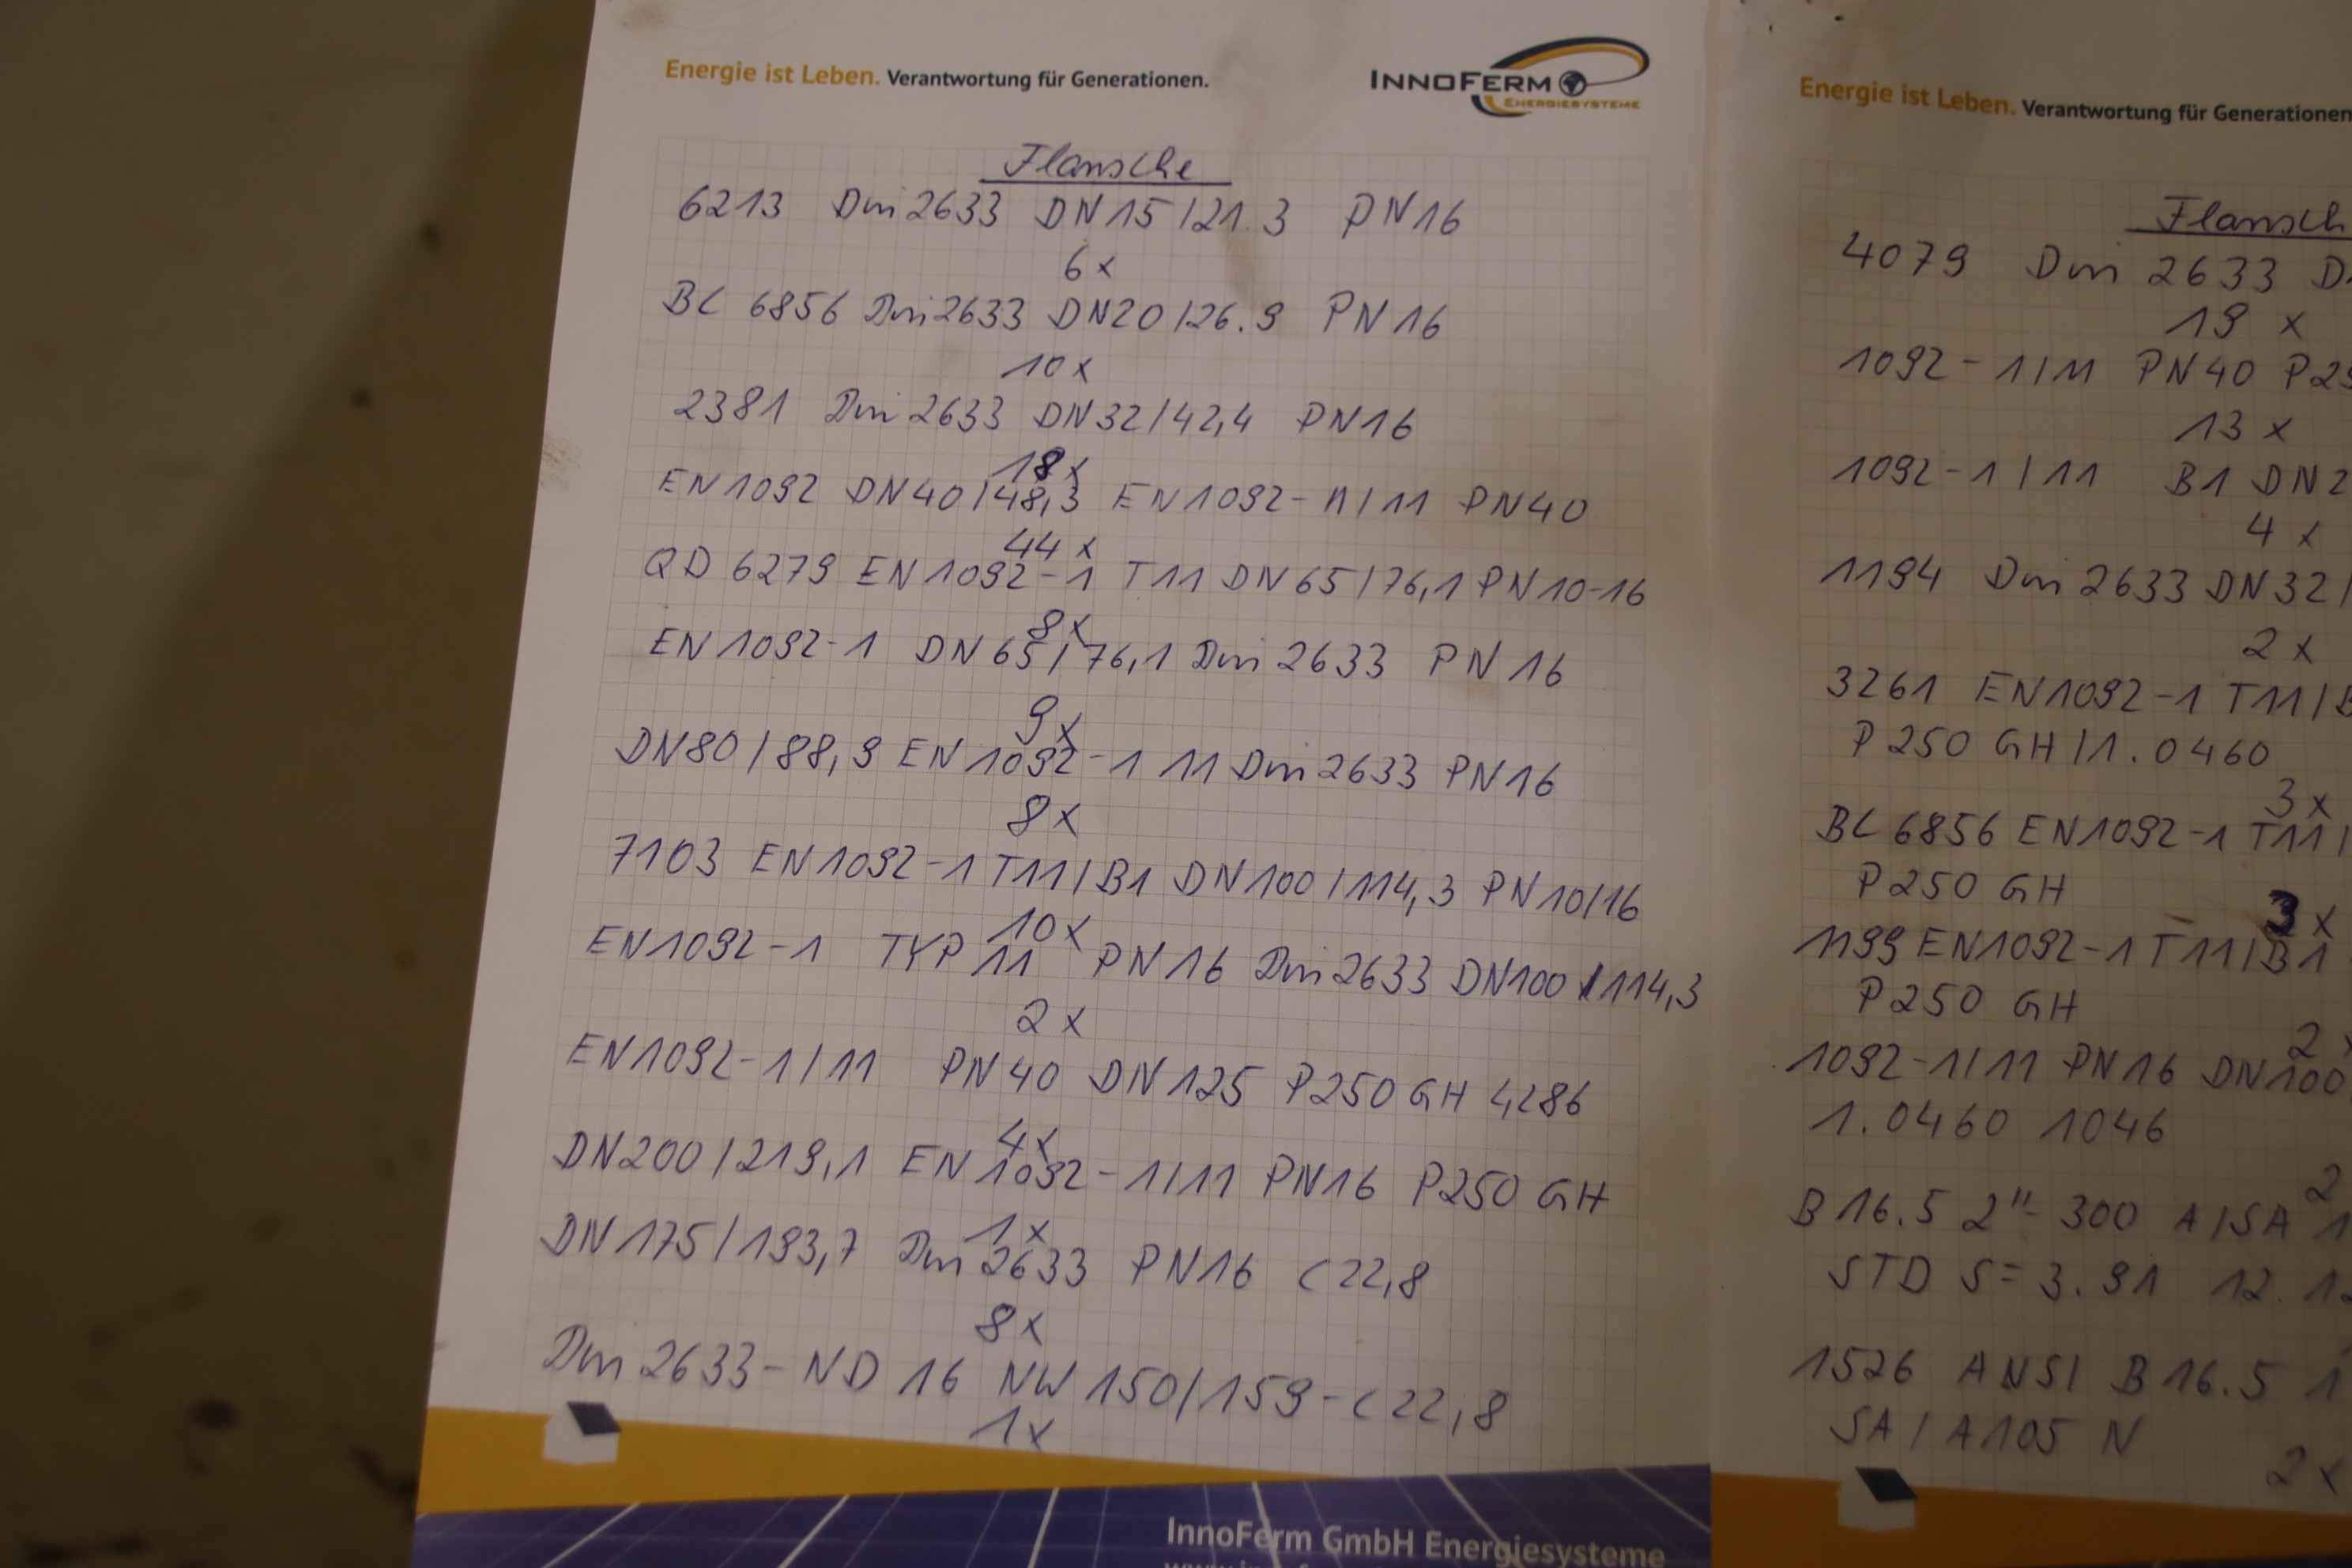 Energie ist Leben. Verantwortung für Generationen.
INNOFERM
ENERGIESYSTEME
Flansche
6213 Din 2633 DN15/21.3 PN16
6x
BL 6856 Din 2633 DN20/26.9 PN16
10x
2381 Din 2633 DN32/42,4 PN16
18x
EN1092 DN40/48,3 EN1092-1/11 PN40
44x
QD 6279 EN1092-1 T11 DN65/76,1 PN10-16
8x
EN1092-1 DN65/76,1 Din 2633 PN16
9x
DN80/88,9 EN1092-1 11 Din 2633 PN16
8x
7103 EN1092-1 T11/B1 DN100/114,3 PN10/16
10x
EN1092-1 TYP 11 PN16 Din 2633 DN100/114,3
2x
EN1092-1/11 PN40 DN125 P250GH 4286
4x
DN200/219,1 EN1092-1/11 PN16 P250GH
1x
DN175/193,7 Din 2633 PN16 C22,8
8x
Din 2633-ND 16 NW 150/159-C22,8
1x
InnoFerm GmbH Energiesysteme
Energie ist Leben. Verantwortung für Generationen
Flansch
4079 Din 2633 D
19 x
1092-1/11 PN40 P25
13 x
1092-1/11 B1 DN2
4 x
1194 Din 2633 DN32/
2x
3261 EN1092-1 T11/B
P250GH/1.0460
3x
BL 6856 EN1092-1 T11/
P250GH
3x
1199 EN1092-1 T11/B1
P250GH
2x
1092-1/11 PN16 DN100
1.0460 1046
2
B16.5 2"-300 A/SA 1
STD S=3.91 12.12
1526 ANSI B16.5 1
SA/A105N
2x